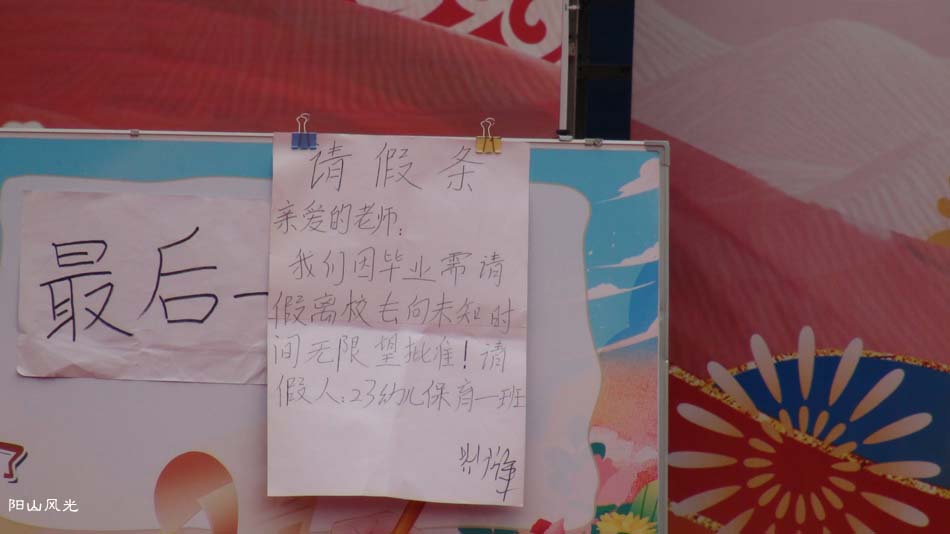 请假条
亲爱的老师:
我们因毕业需请
假离校去向未知时
间无限望批准!请
假人:23幼儿保育一班
最后一
阳山风光